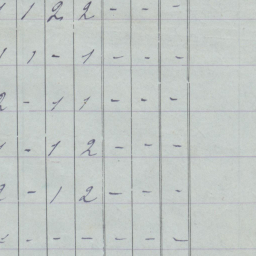 1 1 2 2 - - -
1 1 - 1 - - -
2 - 1 1 - - -
1 - 1 2 - - -
2 - 1 2 - - -
- - - - - - -